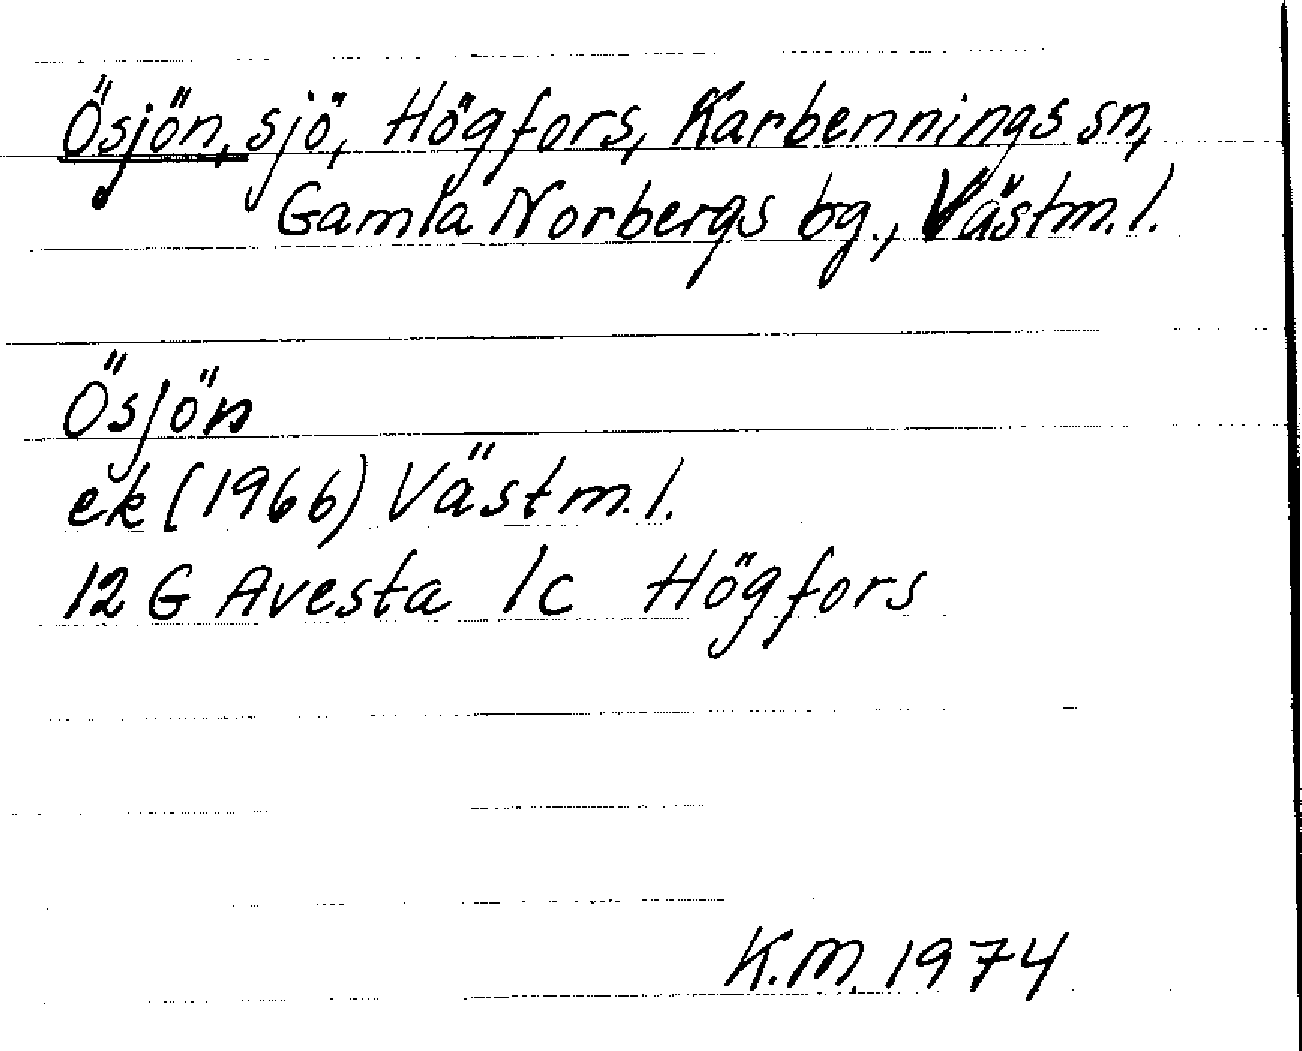 Ösjön, sjö, Högfors, Karbennings sn,
Gamla Norbergs bg., Västm.l.
Ösjön
ek (1966) Västm.l.
12 G Avesta 1c Högfors
K.M. 1974